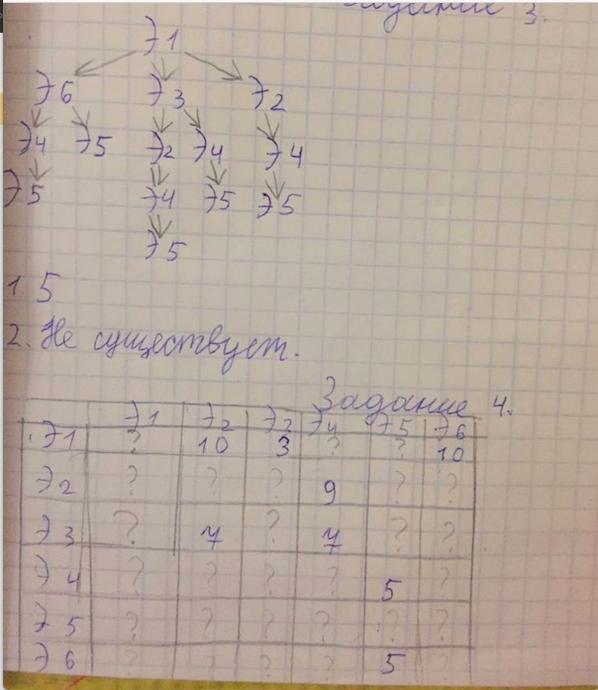 Задание 3.
Э1
Э6 Э3 Э2
Э4 Э5 Э2 Э4 Э4
Э5 Э4 Э5 Э5
Э5
1 5
2. Не существует.
Задание 4.
Э1 Э2 Э3 Э4 Э5 Э6
Э1 ? 10 3 ? ? 10
Э2 ? ? ? 9 ? ?
Э3 ? 7 ? 7 ? ?
Э4 ? ? ? ? 5 ?
Э5 ? ? ? ? ? ?
Э6 ? ? ? ? 5 ?